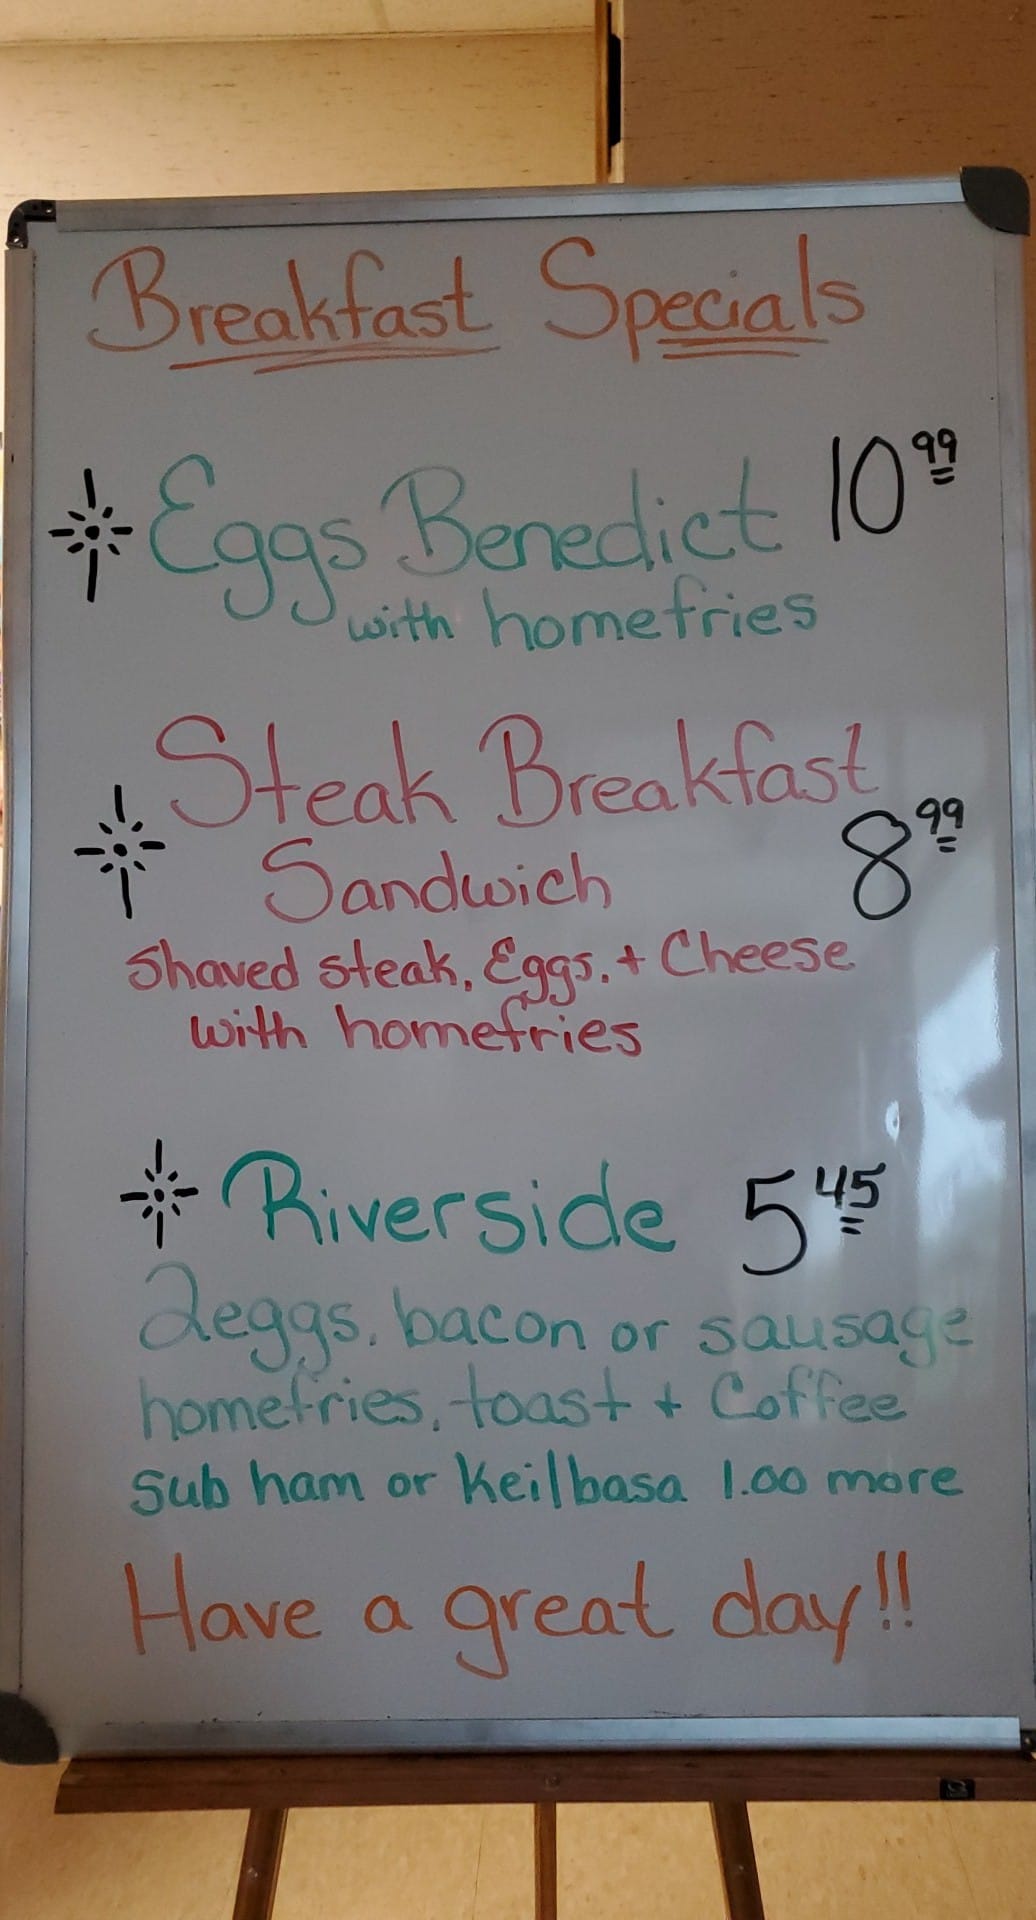 Breakfast Specials
Eggs Benedict 10 99
with homefries
Steak Breakfast
Sandwich 8 99
Shaved steak, Eggs, + Cheese
with homefries
Riverside 5 45
2eggs, bacon or sausage
homefries, toast + Coffee
Sub ham or Keilbasa 1.00 more
Have a great day!!